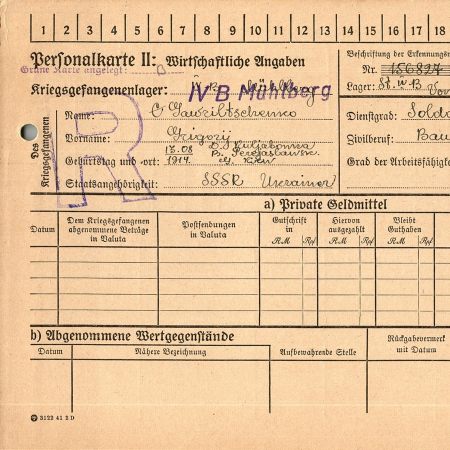 1 2 3 4 5 6 7 8 9 10 11 12 13 14 15 16 17 18
Personalkarte II: Wirtschaftliche Angaben
Beschriftung der Erkennungsm
Grüne Karte angelegt:
Nr. 156827
Kriegsgefangenenlager: IV B Mühlberg
Lager: St. IV B
Des Kriegsgefangenen
R
Name:
Dienstgrad: Solda
Vorname: Grigorij
Zivilberuf: Bau
Geburtstag und -ort: 13.08 1914.
Grad der Arbeitsfähigke
Staatsangehörigkeit: SSSR Ukrainer
a) Private Geldmittel
Datum
Dem Kriegsgefangenen abgenommene Beträge in Valuta
Postsendungen in Valuta
Gutschrift in
Hiervon ausgezahlt
Bleibt Guthaben
Datum
RM Rpf RM Rpf RM Rpf
b) Abgenommene Wertgegenstände
Datum
Nähere Bezeichnung
Aufbewahrende Stelle
Rückgabevermerk mit Datum
3122 41 2 D